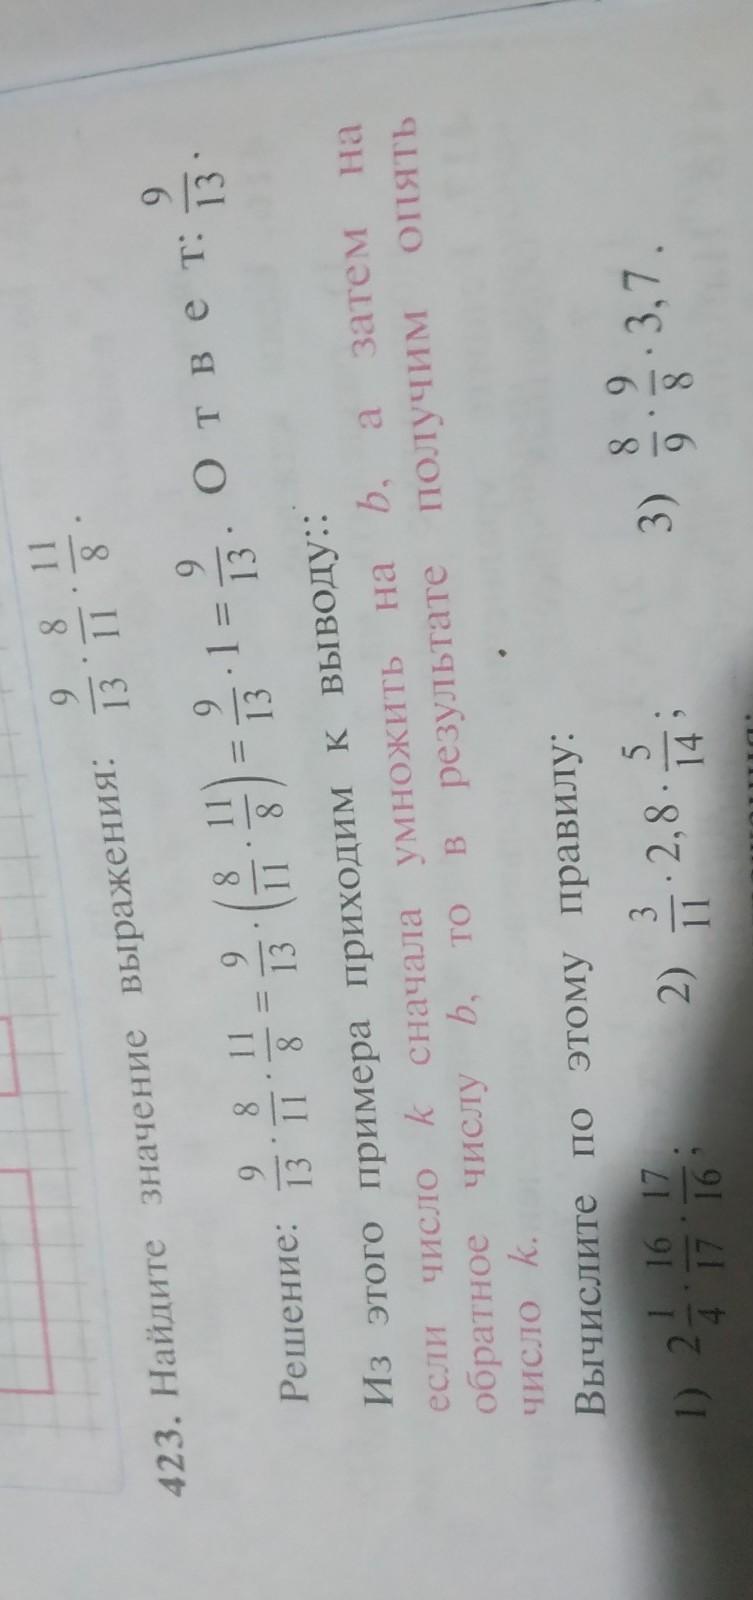 423. Найдите значение выражения: 9/13 · 8/11 · 11/8.
Решение: 9/13 · 8/11 · 11/8 = 9/13 · (8/11 · 11/8) = 9/13 · 1 = 9/13. О т в е т: 9/13.
Из этого примера приходим к выводу::
если число k сначала умножить на b, а затем на
обратное числу b, то в результате получим опять
число k.
Вычислите по этому правилу:
1) 2 1/4 · 16/17 · 17/16; 2) 3/11 · 2,8 · 5/14; 3) 8/9 · 9/8 · 3,7.